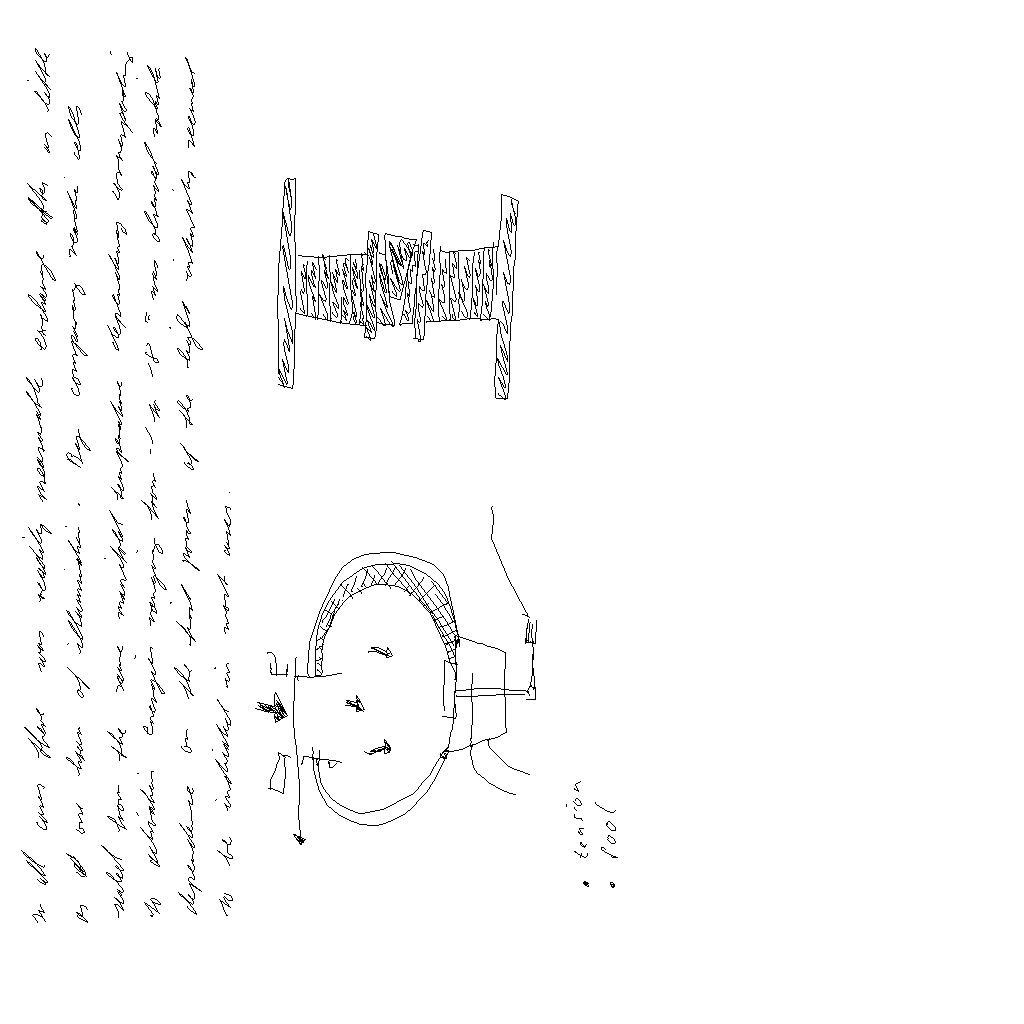 In all cases there was readily measurable exchange after as little
as one hour of illumination. By comparing results cells
sealed from the same manifold temperature dependency corresponding
to activation energies ranging from was observed
dependence on the power of the light intensity seemed
to be indicated in most cases.
• tension
• pool